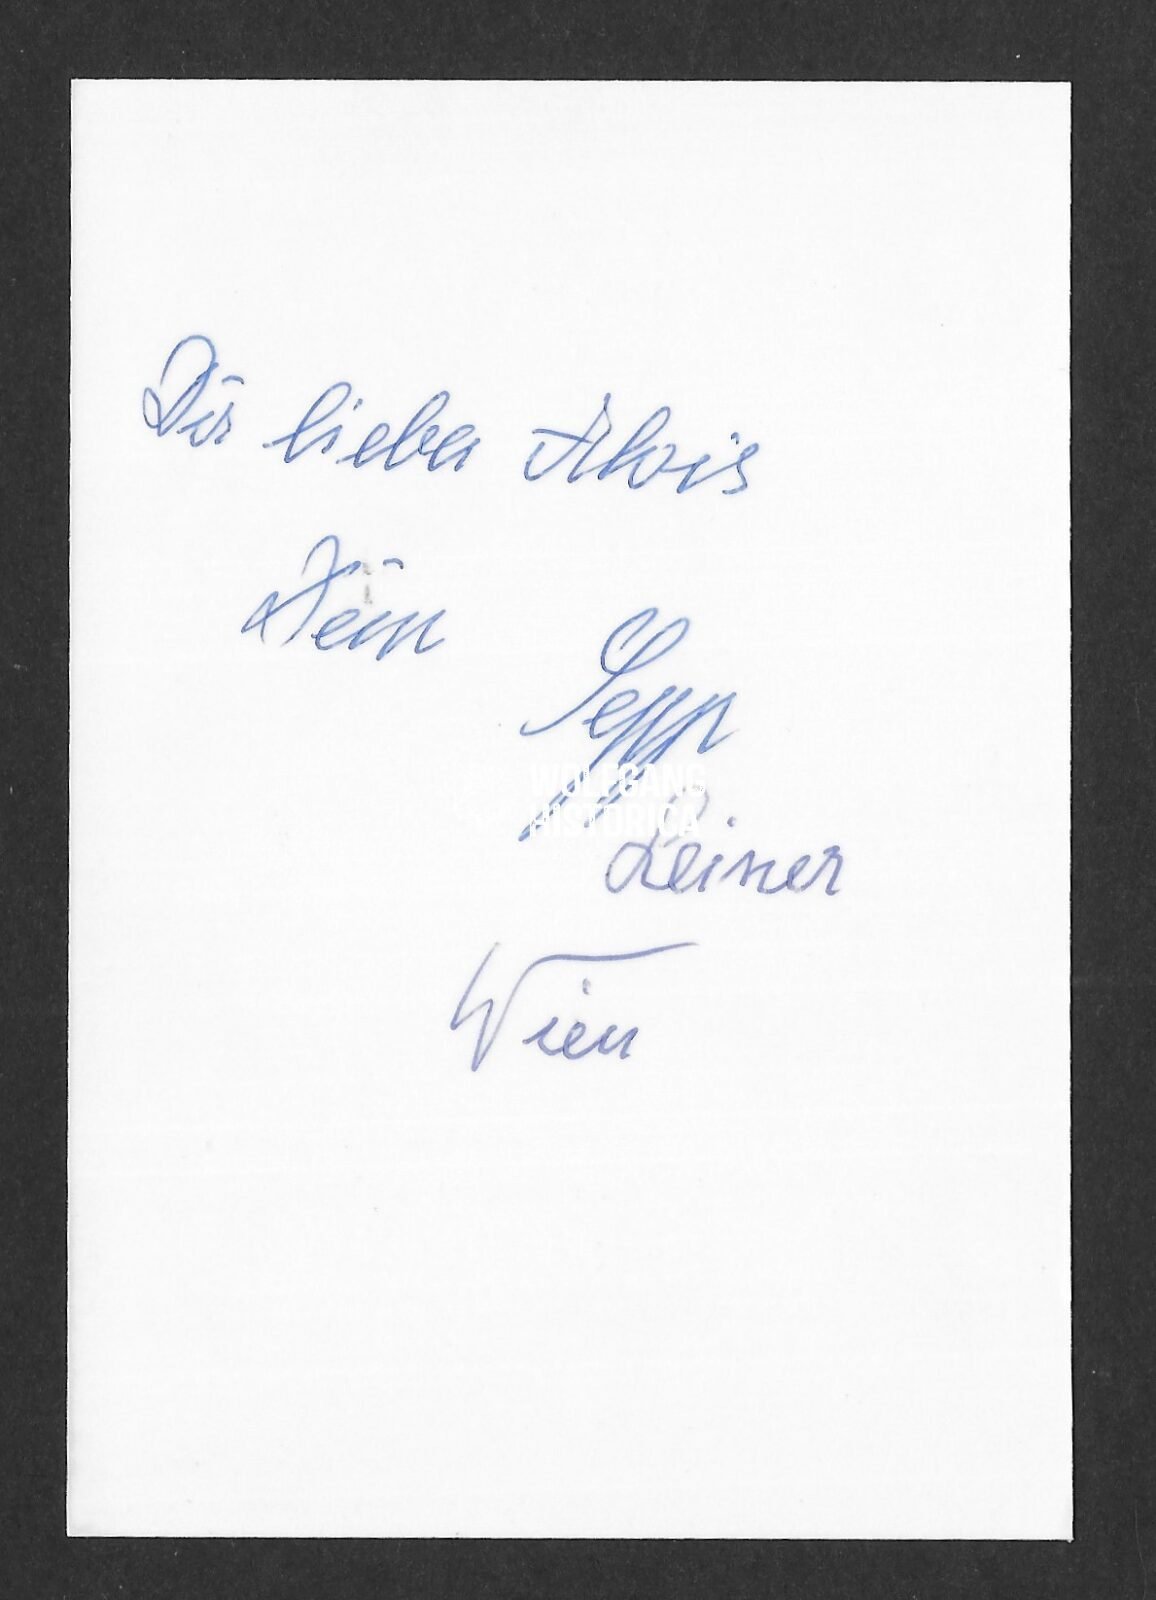 Dir lieber Alois
Dein
Sepp
WOLFGANG
HISTORICA
Leiner
Wien